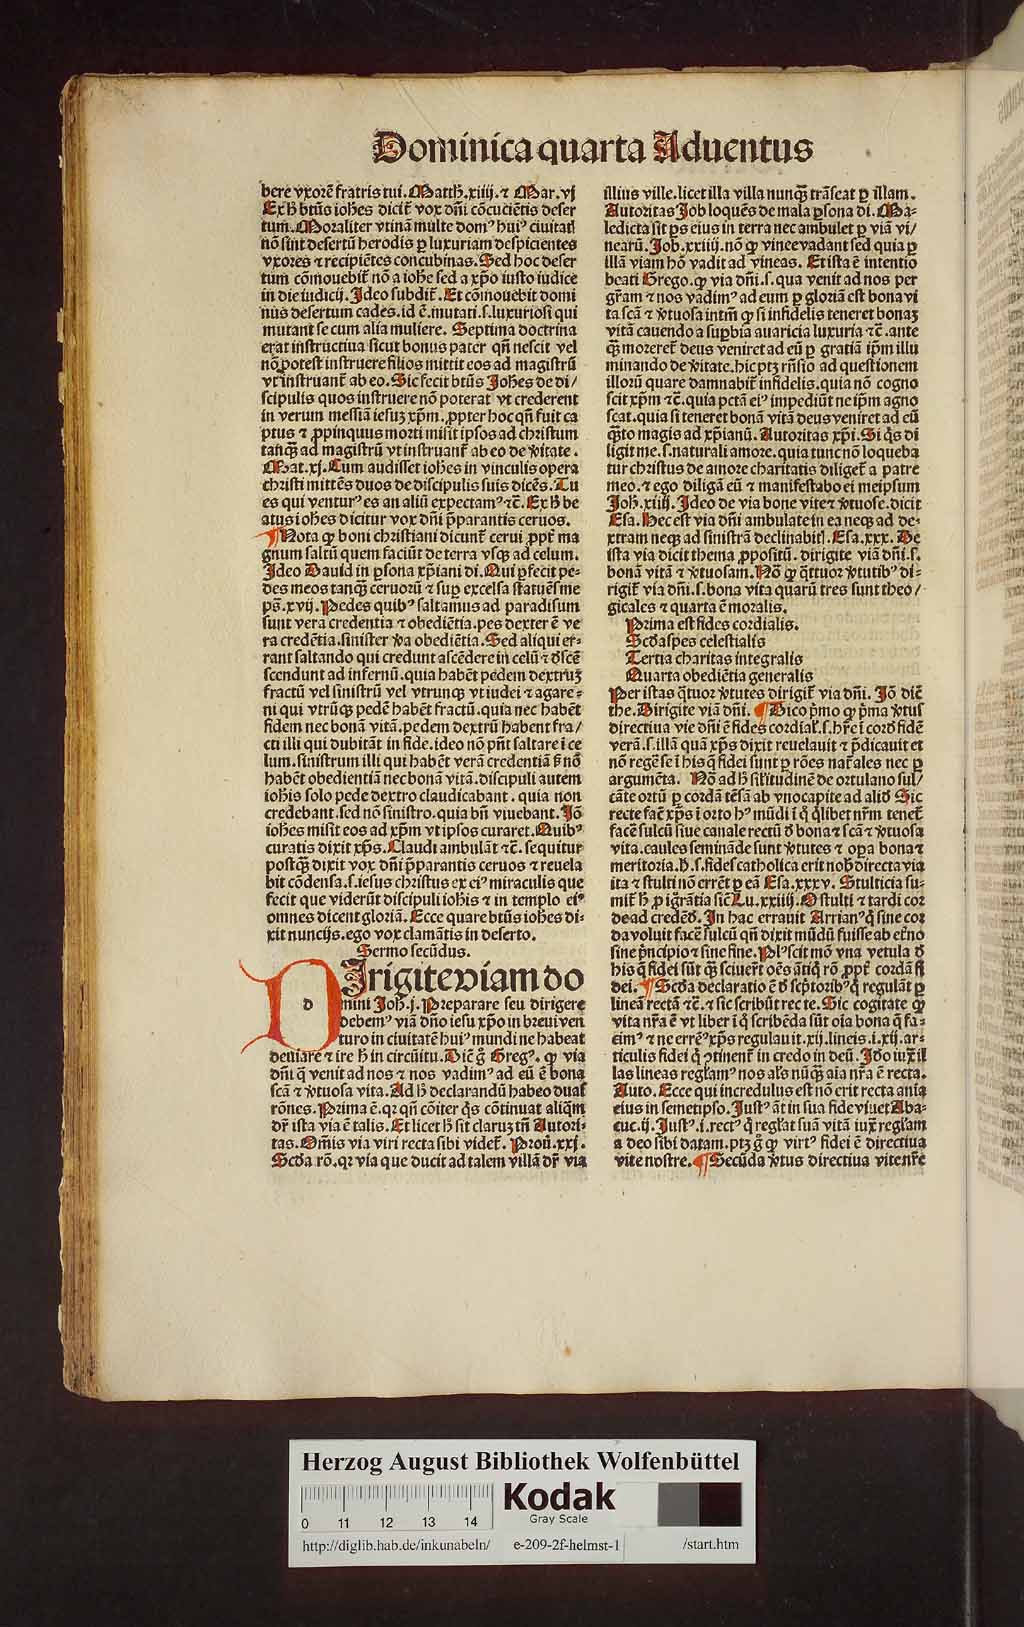 Dominica quarta Aduentus
bere vxorē fratris tui. Matth. xiiij. ⁊ Mar. vj
Ex h̄ btūs iohēs dicit̄ vox dn̄i cōcuciētis deser
tum. Moraliter vtinā multe domꝰ huiꝰ ciuitatꝭ
nō sint desertū herodis ꝑ luxuriam despicientes
vxores ⁊ recipiētes concubinas. Sed hoc deser
tum cōmouebit̄ nō a iohē sed a xp̄o iusto iudice
in die iudicij. Ideo subdit̄. Et cōmouebit domi
nus desertum cades. id ē. mutati. s. luxuriosi qui
mutant se cum alia muliere. Septima doctrina
erat instructiua sicut bonus pater qn̄ nescit vel
nō potest instruere filios mittit eos ad magistrū
vt instruant̄ ab eo. Sic fecit btūs Johēs de di/
scipulis quos instruere nō poterat vt crederent
in verum messiā iesuꝫ xp̄m. ꝓpter hoc qn̄ fuit ca
ptus ⁊ ꝓpinquus morti misit ipsos ad christum
tanqꝫ ad magistrū vt instruant̄ ab eo de v̄itate.
Mat. xj. Cum audisset iohēs in vinculis opera
christi mittēs duos de discipulis suis dicēs. Tu
es qui venturꝰ es an aliū expectamꝰ ⁊c̄. Ex h̄ be
atus iohēs dicitur vox dn̄i p̄parantis ceruos.
¶ Nota qꝫ boni christiani dicunt̄ cerui ꝓpt̄ ma
gnum saltū quem faciūt de terra vsqꝫ ad celum.
Ideo Dauid in ꝑsona xp̄iani di. Qui ꝑfecit pe-
des meos tanqꝫ ceruorū ⁊ suꝑ excelsa statuēs me
ps̄. xvij. Pedes quibꝰ saltamus ad paradisum
sunt vera credentia ⁊ obediētia. pes dexter ē ve
ra credētia. sinister v̄a obediētia. Sed aliqui er-
rant saltando qui credunt ascēdere in celū ⁊ dscē
scendunt ad infernū. quia habēt pedem dextruꝫ
fractū vel sinistrū vel vtrunqꝫ vt iudei ⁊ agare-
ni qui vtrūqꝫ pedē habēt fractū. quia nec habēt
fidem nec bonā vitā. pedem dextrū habent fra/
cti illi qui dubitāt in fide. ideo nō pn̄t saltare ī ce
lum. sinistrum illi qui habēt verā credentiā s̄ nō
habēt obedientiā nec bonā vitā. discipuli autem
iohīs solo pede dextro claudicabant. quia non
credebant. sed nō sinistro. quia bn̄ viuebant. Jō
iohēs misit eos ad xp̄m vt ipsos curaret. Quibꝰ
curatis dixit xp̄s. Claudi ambulāt ⁊c̄. sequitur
postqꝫ dixit vox dn̄i p̄parantis ceruos ⁊ reuela
bit cōdensa. s. iesus christus ex eiꝰ miraculis que
fecit que viderūt discipuli iohīs ⁊ in templo eiꝰ
omnes dicent gloriā. Ecce quare btūs iohēs di-
xit nuncijs. ego vox clamātis in deserto.
Sermo secūdus.
d
Irigite viam do
mini Joh̄. j. Preparare seu dirigere
debemꝰ viā dn̄o iesu xp̄o in breui ven
turo in ciuitatē huiꝰ mundi ne habeat
deuiare ⁊ ire h̄ in circūitu. Dic̄ g̊ Gregꝰ. qꝫ via
dn̄i q̄ venit ad nos ⁊ nos vadimꝰ ad eū ē bona
scā ⁊ v̄tuosa vita. Ad h̄ declarandū habeo duas
rōnes. Prima ē. qꝛ qn̄ cōiter q̊s cōtinuat aliqm̄
dr̄ ista via ē talis. Et licet h̄ sit claruꝫ tn̄ Autori-
tas. Om̄is via viri recta sibi videt̄. Prou. xxj.
Scd̄a rō. qꝛ via que ducit ad talem villā dr̄ via
illius ville. licet illa villa nunqꝫ trāseat ꝑ illam.
Autoritas Job loquēs de mala ꝑsona di. Ma-
ledicta sit ꝑs eius in terra nec ambulet ꝑ viā vi/
nearū. Job. xxiiij. nō qꝫ vinee vadant sed quia ꝑ
illā viam hō vadit ad vineas. Et ista ē intentio
beati Grego. qꝫ via dn̄i. s. qua venit ad nos per
gr̄am ⁊ nos vadimꝰ ad eum ꝑ gloriā est bona vi
ta scā ⁊ v̄tuosa intm̄ qꝫ si infidelis teneret bonaꝫ
vitā cauendo a suꝑbia auaricia luxuria ⁊c̄. ante
qꝫ moreret̄ deus veniret ad eū ꝑ gratiā ip̄m illu
minando de v̄itate. hic ptꝫ rn̄sio ad questionem
illorū quare damnabit̄ infidelis. quia nō cogno
scit xp̄m ⁊c̄. quia pctā eiꝰ impediūt ne ip̄m agno
scat. quia si teneret bonā vitā deus veniret ad eū
q̄to magis ad xp̄ianū. Autoritas xp̄i. Si q̊s di
ligit me. s. naturali amore. quia tunc nō loqueba
tur christus de amore charitatis diliget̄ a patre
meo. ⁊ ego diligā eū ⁊ manifestabo ei meipsum
Joh̄. xiiij. Ideo de via bone vite ⁊ v̄tuose. dicit
Esa. Hec est via dn̄i ambulate in ea neqꝫ ad de-
xtram neqꝫ ad sinistrā declinabitꝭ. Esa. xxx. De
ista via dicit thema ꝓpositū. dirigite viā dn̄i. s.
bonā vitā ⁊ v̄tuosam. Nō qꝫ q̄ttuor v̄tutibꝰ di-
rigit̄ via dn̄i. s. bona vita quarū tres sunt theo/
gicales ⁊ quarta ē moralis.
Prima est fides cordialis.
Scd̄a spes celestialis
Tertia charitas integralis
Quarta obediētia generalis
Per istas q̄tuor v̄tutes dirigit̄ via dn̄i. Jō dic̄
the. Dirigite viā dn̄i. ¶ Dico p̄mo qꝫ p̄ma v̄tus
directiua vie dn̄i ē fides cordial̄. s. hr̄e ī cord̄ fidē
verā. s. illā quā xp̄s dixit reuelauit ⁊ p̄dicauit et
nō regē se ī his q̄ fidei sunt ꝑ rōes nat̄ales nec ꝑ
argumēta. Nō ad h̄ sil̄itudinē de ortulano sul/
cāte ortū ꝑ cordā tēsā ab vno capite ad aliđ Sic
recte fac̄ xp̄s ī orto hꝰ mūdi ī q̊ q̊libet nr̄m tenet̄
facē sulcū siue canale rectū đ bona ⁊ scā ⁊ v̄tuosa
vita. caules seminādē sunt v̄tutes ⁊ oꝑa bona ⁊
meritoria. h̄. s. fides catholica erit nob̄ directa via
ita ⁊ stulti nō errēt ꝑ eā Esa. xxxv. Stulticia su-
mit̄ h̄ ꝓ ignrātia sic̄ Lu. xxiiij. O stulti ⁊ tardi cor
de ad credēđ. In hac errauit Arrianꝰ q̊ sine cor
da voluit facē sulcū qn̄ dixit mūdū fuisse ab et̄no
sine p̄ncipio ⁊ sine fine. Plꝰ scit mō vna vetula đ
his q̄ fidei sūt qꝫ sciuer̄t oēs ātiq̊ rō ꝓpt̄ cordā fi
dei. ¶ Scd̄a declaratio ē đ scp̄toribꝰ q̊ regulāt ꝑ
lineā rectā ⁊c̄. ⁊ sic scribūt recte. Sic cogitate qꝫ
vita nr̄a ē vt liber ī q̊ scribēda sūt oīa bona q̄ fa-
cimꝰ ⁊ ne erremꝰ xp̄s regulauit. xij. lineis. i. xij. ar-
ticulis fidei q̊ ꝯtinent̄ in credo in deū. Jdo iux̄ il
las lineas reglamꝰ nos al̄s nūqꝫ aīa nr̄a ē recta.
Auto. Ecce qui incredulus est nō erit recta anīa
eius in semetipso. Justꝰ āt in sua fide viuet Aba-
cuc. ij. Justꝰ. i. rectꝰ q̊ reglat suā vitā iux̄ reglam
a deo sibi datam. ptꝫ g̊ qꝫ virtꝰ fidei ē directiua
vite nostre. ¶ Secūda v̄tus directiua vite nr̄e
Herzog August Bibliothek Wolfenbüttel
0 11 12 13 14
Kodak
Gray Scale
http://diglib.hab.de/inkunabeln/ e-209-2f-helmst-1 /start.htm